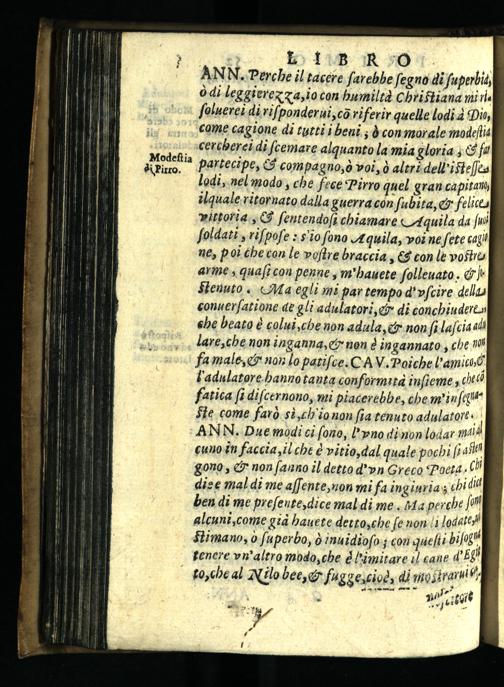 LIBRO
ANN. Perche il tacere sarebbe segno di superbia,
ò di leggierezza, io con humiltà Christiana mi ri
soluerei di risponderui, cõ riferir quelle lodi à Dio,
come cagione di tutti i beni; ò con morale modestia
cercherei di scemare alquanto la mia gloria, & far
Modestia
di Pirro.
partecipe, & compagno, ò voi, ò altri dell'istesse
lodi, nel modo, che fece Pirro quel gran capitano,
ilquale ritornato dalla guerra con subita, & felice
vittoria, & sentendosi chiamare Aquila da suoi
soldati, rispose: s'io sono Aquila, voi ne sete cagio
ne, poi che con le vostre braccia, & con le vostre
arme, quasi con penne, m'hauete solleuato, & so-
stenuto. Ma egli mi par tempo d'vscire della
conuersatione de gli adulatori, & di conchiudere
che beato è colui, che non adula, & non si lascia adu
lare, che non inganna, & non è ingannato, che non
fa male, & non lo patisce. CAV. Poiche l'amico, &
l'adulatore hanno tanta conformità insieme, che cõ
fatica si discernono, mi piacerebbe, che m'insegna-
ste come farò sì, ch'io non sia tenuto adulatore.
ANN. Due modi ci sono, l'vno di non lodar mai al
cuno in faccia, il che è vitio, dal quale pochi si asten
gono, & non sanno il detto d'vn Greco Poeta. Chi
dice mal di me assente, non mi fa ingiuria; chi dice
ben di me presente, dice mal di me. Ma perche sono
alcuni, come già hauete detto, che se non li lodate,
stimano, ò superbo, ò inuidioso; con questi bisogna
tenere vn'altro modo, che è l'imitare il cane d'Egit
to, che al Nilo bee, & fugge, cioè, di mostrarui